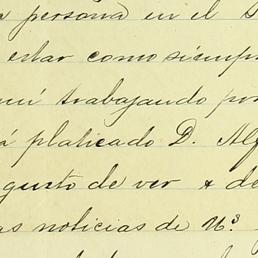 persona en el
estar como siempr
trabajando por
á platicado D. Alf
gusto de ver & de
as noticias de U.s